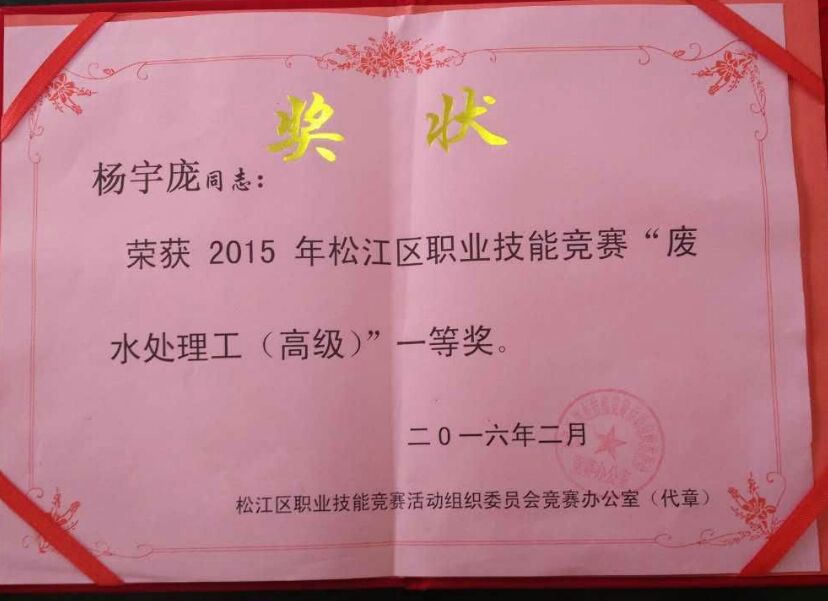 奖 状
杨宇庞同志：
荣获 2015 年松江区职业技能竞赛“废
水处理工（高级）”一等奖。
二0一六年二月
松江区职业技能竞赛活动组织委员会竞赛办公室（代章）